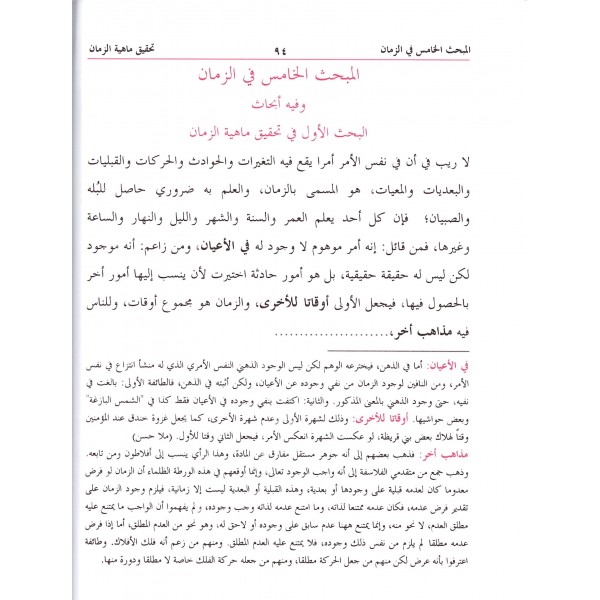 المبحث الخامس في الزمان ٩٤ تحقيق ماهية الزمان
المبحث الخامس في الزمان
وفيه أبحاث
البحث الأول في تحقيق ماهية الزمان
لا ريب في أن في نفس الأمر أمرا يقع فيه التغيرات والحوادث والحركات والقبليات
والبعديات والمعيات، هو المسمى بالزمان، والعلم به ضروري حاصل للبُله
والصبيان؛ فإن كل أحد يعلم العمر والسنة والشهر والليل والنهار والساعة
وغيرها، فمن قائل: إنه أمر موهوم لا وجود له في الأعيان، ومن زاعم: أنه موجود
لكن ليس له حقيقة حقيقية، بل هو أمور حادثة اختيرت لأن ينسب إليها أمور أخر
بالحصول فيها، فيجعل الأولى أوقاتا للأخرى، والزمان هو مجموع أوقات، وللناس
فيه مذاهب أخر،.......................
في الأعيان: أما في الذهن، فيخترعه الوهم لكن ليس الوجود الذهني النفس الأمري الذي له منشأ انتزاع في نفس
الأمر، ومن النافين لوجود الزمان من نفي وجوده عن الأعيان، ولكن أثبته في الذهن، فالطائفة الأولى: بالغت في
نفيه، حتى وجود الذهني بالمعنى المذكور. والثانية: اكتفت بنفي وجوده في الأعيان فقط كذا في "الشمس البازغة"
وبعض حواشيها. أوقاتا للأخرى: وذلك لشهرة الأولى وعدم شهرة الأخرى، كما يجعل غزوة خندق عند المؤمنين
وقتاً لهلاك بعض بني قريظة، لو عكست الشهرة انعكس الأمر، فيجعل الثاني وقتا للأول. (ملا حسن)
مذاهب أخر: فذهب بعضهم إلى أنه جوهر مستقل مفارق عن المادة، وهذا الرأي ينسب إلى أفلاطون ومن تابعه.
وذهب جميع من متقدمي الفلاسفة إلى أنه واجب الوجود تعالى، وإنما أوقعهم في هذه الورطة الظلماء أن الزمان لو فرض
معدوما كان لعدمه قبلية على وجودها أو بعدية، وهذه القبلية أو البعدية ليست إلا زمانية، فيلزم وجود الزمان على
تقدير فرض عدمه، فكان عدمه ممتنعا لذاته، وما امتنع عدمه لذاته وجب وجوده، و لم يفهموا أن الواجب ما يمتنع عليه
مطلق العدم، لا نحو منه، وإنما يمتنع ههنا عدم سابق على وجوده أو لاحق له، وهو نحو من العدم المطلق، أما إذا فرض
عدمه مطلقا لم يلزم من نفس ذلك وجوده، فلا يمتنع عليه العدم المطلق. ومنهم من زعم أنه فلك الأفلاك. وطائفة
اعترفوا بأنه عرض لكن منهم من جعل الحركة مطلقا، ومنهم من جعله حركة الفلك خاصة لا مطلقا ودورة منها.